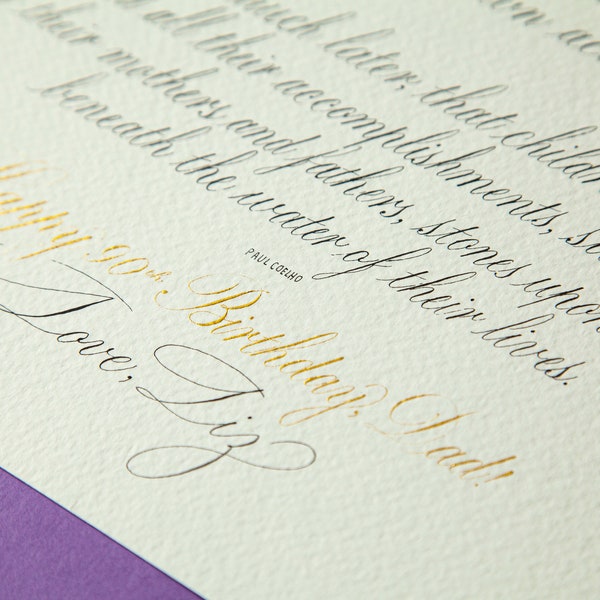 much later, that child
all their accomplishments,
their mothers and fathers, stones upon
beneath the water of their lives.
PAUL COELHO
Happy 90th Birthday, Dad!
Love, Liz